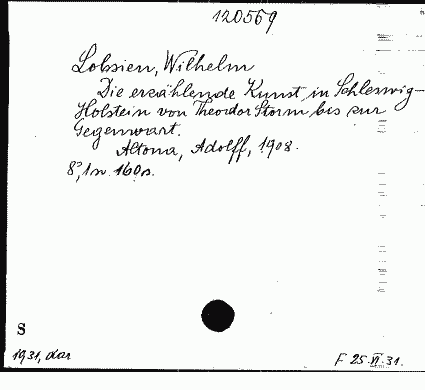 120569
Lobsien, Wilhelm
Die erzählende Kunst in Schleswig-
Holstein von Theodor Storm bis zur
Gegenwart.
Altona, Adolff, 1908.
8°, 1 n. 160 s.
S
1931, dar
F 25.VI.31.